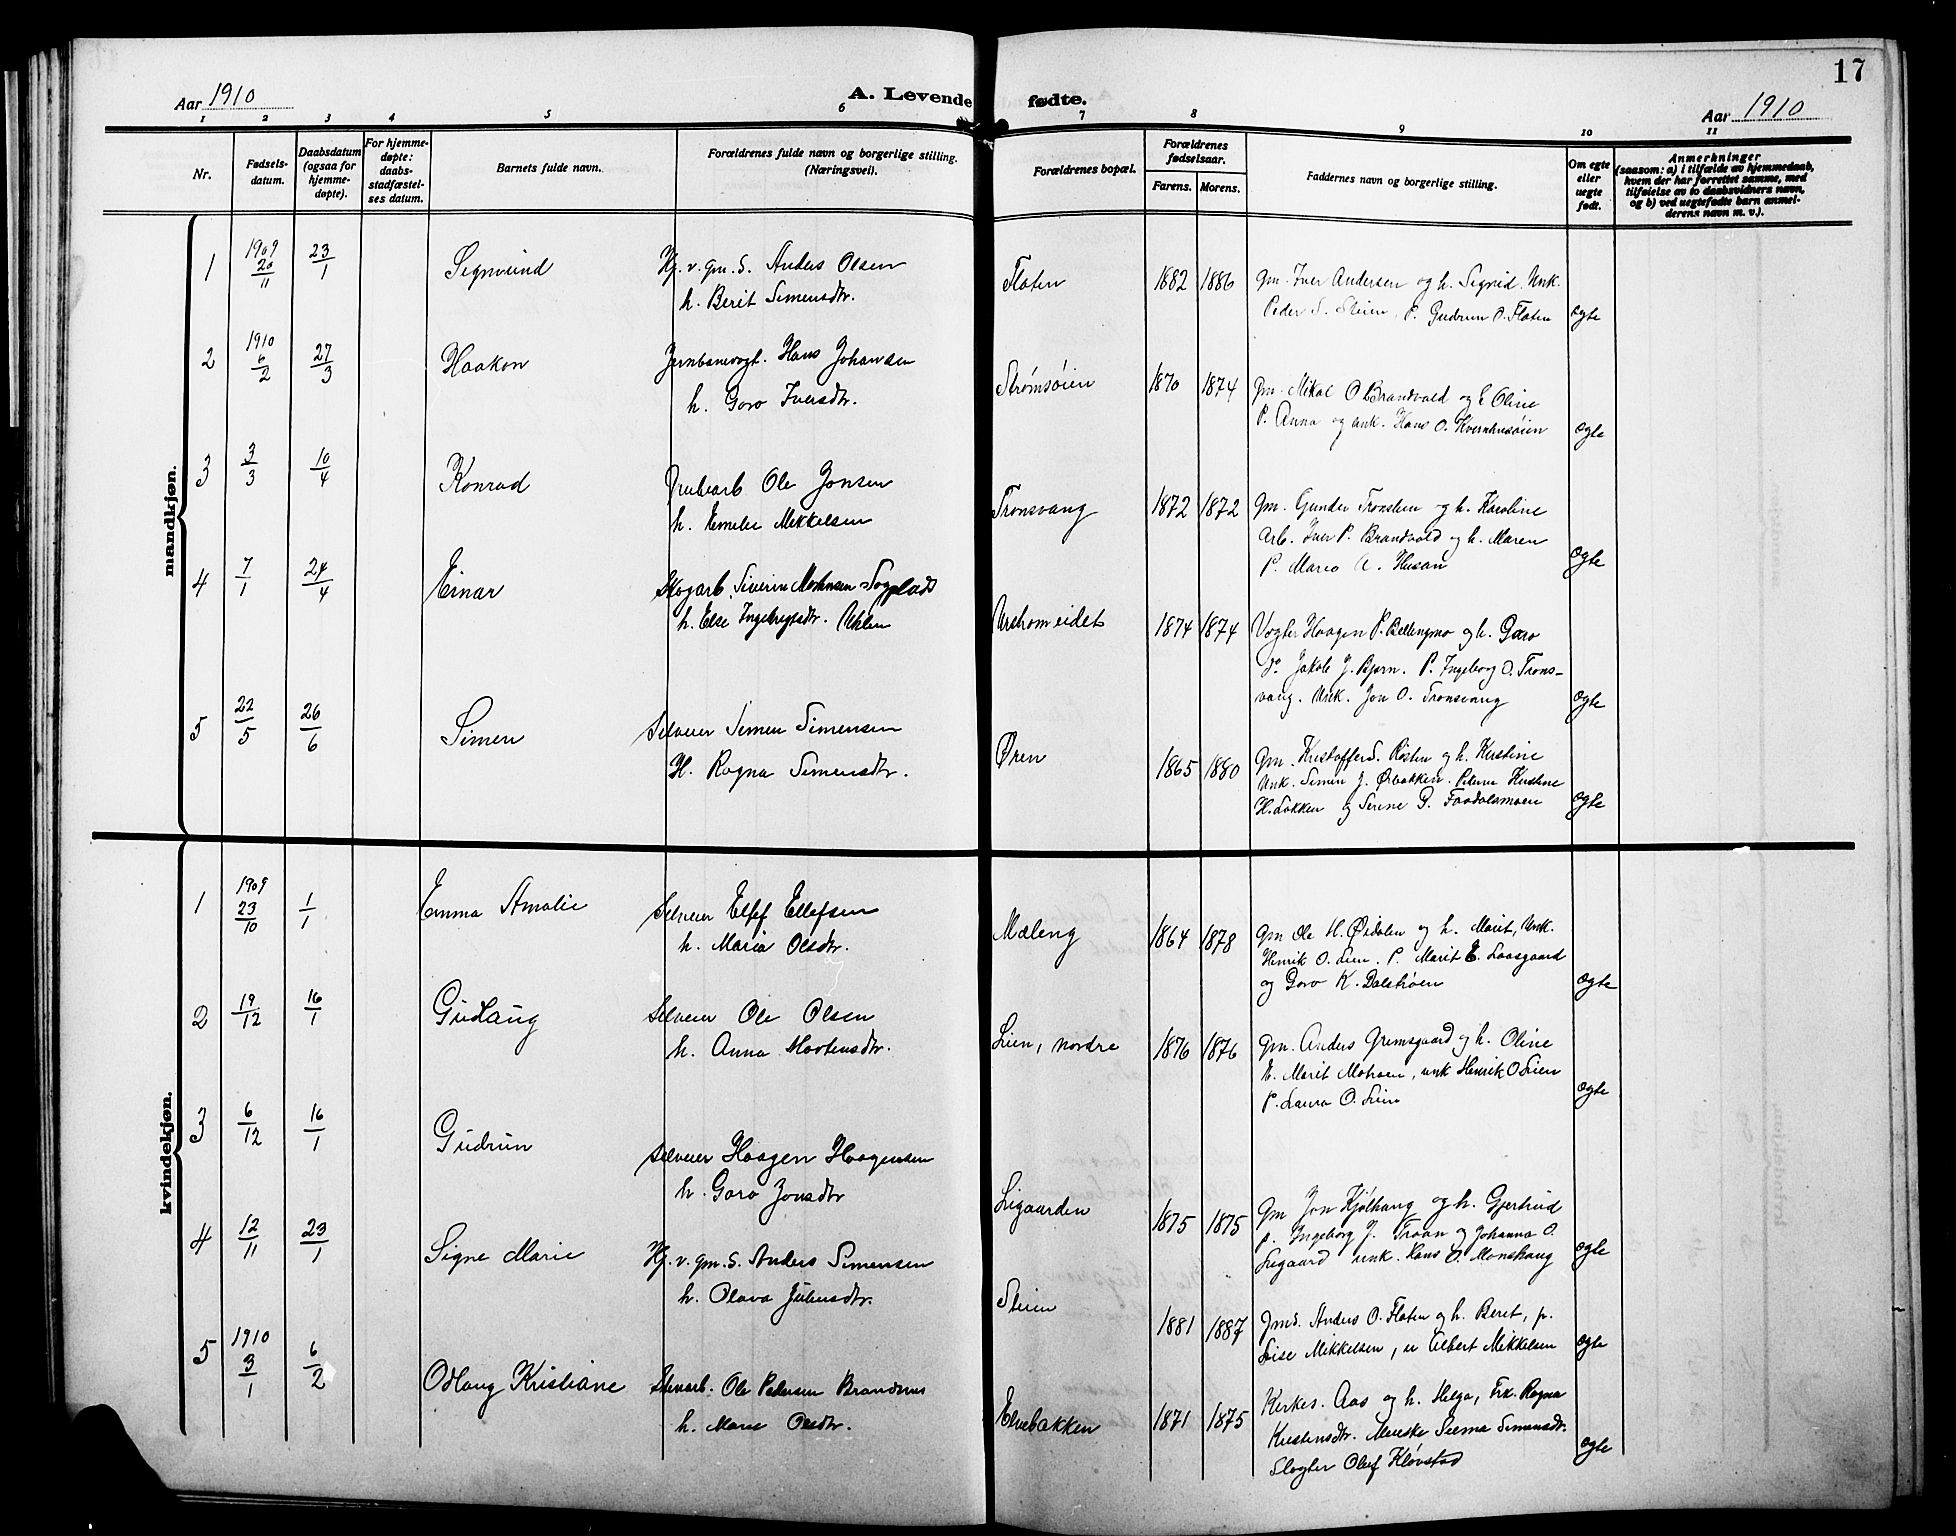 17
Aar 1910
A. Levende fødte.
Aar 1910
1 2 3 4 5 6 7 8 9 10 11
Nr.
Fødsels-
datum.
Daabsdatum
(ogsaa for
hjemme-
døpte).
For hjemme-
døpte:
daabs-
stadfæstel-
ses datum.
Barnets fulde navn.
Forældrenes fulde navn og borgerlige stilling.
(Næringsvei).
Forældrenes bopæl.
Forældrenes
fødselsaar.
Farens. Morens.
Faddernes navn og borgerlige stilling.
Om egte
eller
uegte
født.
Anmerkninger
(saasom: a) i tilfælde av hjemmedaab,
hvem der har forrettet samme, med
tilføielse av to daabsvidners navn,
og b) ved uegtefødte barn anmel-
derens navn m. v.).
mandkjøn.
1 1909 20/11 23/1 Sigmund
Hj. v. gm. S. Anders Olsen
h. Berit Simensdtr.
Floten 1882 1886
Gm. Iver Andersen og h. Sigrid. Unk.
Peder S. Steien, P. Gudrun O. Floten
egte
2 1910 6/2 27/3 Haakon
Jernbanevogt. Hans Johansen
h. Goro Iversdtr.
Strømsøien 1870 1874
Gm. Mikal O Brandvold og Oline
P. Anna og unk. Hans O. Kvernhusøien
egte
3 3/3 10/4 Konrad
Ole Jonsen
h. Emelie Mikkelsen
Tronsvang 1872 1872
Gm. Gunder Tronslien og h. Karoline
Arb. Iver P. Brandvold og h. Maren
P. Maren A. Husan
egte
4 7/1 24/4 Einar
Skogarb. Siverin Mortensen Sagplads
h. Else Ingebrigtsdtr.
1874 1874
Vogter Haagen P. Bellingmo og h. Goro
do Jakob J. Bjørn. P. Ingeborg O. Trons-
vang. Unk. Jon O. Tronsvang
egte
5 22/5 26/6 Simen
Selveier Simen Simensen
H. Ragna Simensdtr.
Øren 1865 1880
Gm. Kristoffer S. Røsten og h. Kristine
Unk. Simen J. Ørbakken. Kristine
H. Løkken og Serine P. Faadalsmoen
egte
kvindekjøn.
1 1909 23/10 1/1 Emma Amalie
Selveier Ellef Ellefsen
h. Maria Olsdtr.
Mæleng 1864 1878
Gm Ole H. Øidalen og h. Marit, Unk.
Henrik O. Lien. P. Marit E. Laasgaard
og Goro K. Dalstrøen
egte
2 19/12 16/1 Gudlaug
Selveier Ole Olsen
h. Anna Mortensdtr.
Lien, nordre 1876 1876
Gm. Anders Gremsgaard og h. Oline
E. Marit Motroen, unk Henrik O Lien
P. Laura O. Lien
egte
3 6/12 16/1 Gudrun
Selveier Haagen Haagensen
h. Goro Jonsdtr
Ligaarden 1875 1875
Gm Jon Kjølhaug og h. Gjertrud
P. Ingeborg J. Troan og Johanna O.
Ligaard unk. Hans O. Monshaug
egte
4 12/11 23/1 Signe Marie
Hj. v. gm. S. Anders Simensen
h. Olava Juliusdtr.
Steien 1881 1887
Gmd. Anders O. Floten og h. Beret, p.
Lise Mikkelsen, u Albert Mikkelsen
egte
5 1910 3/1 6/2 Odlaug Kristiane
Stenarb. Ole Pedersen Brandnes
h. Marie Olsdtr.
Elvebakken 1871 1875
Kirkes. Aas og h. Helga, Frk. Ragna
Kristensdtr. Meierske Selma Simensdtr.
Slagter Oluf Kløvstad
egte